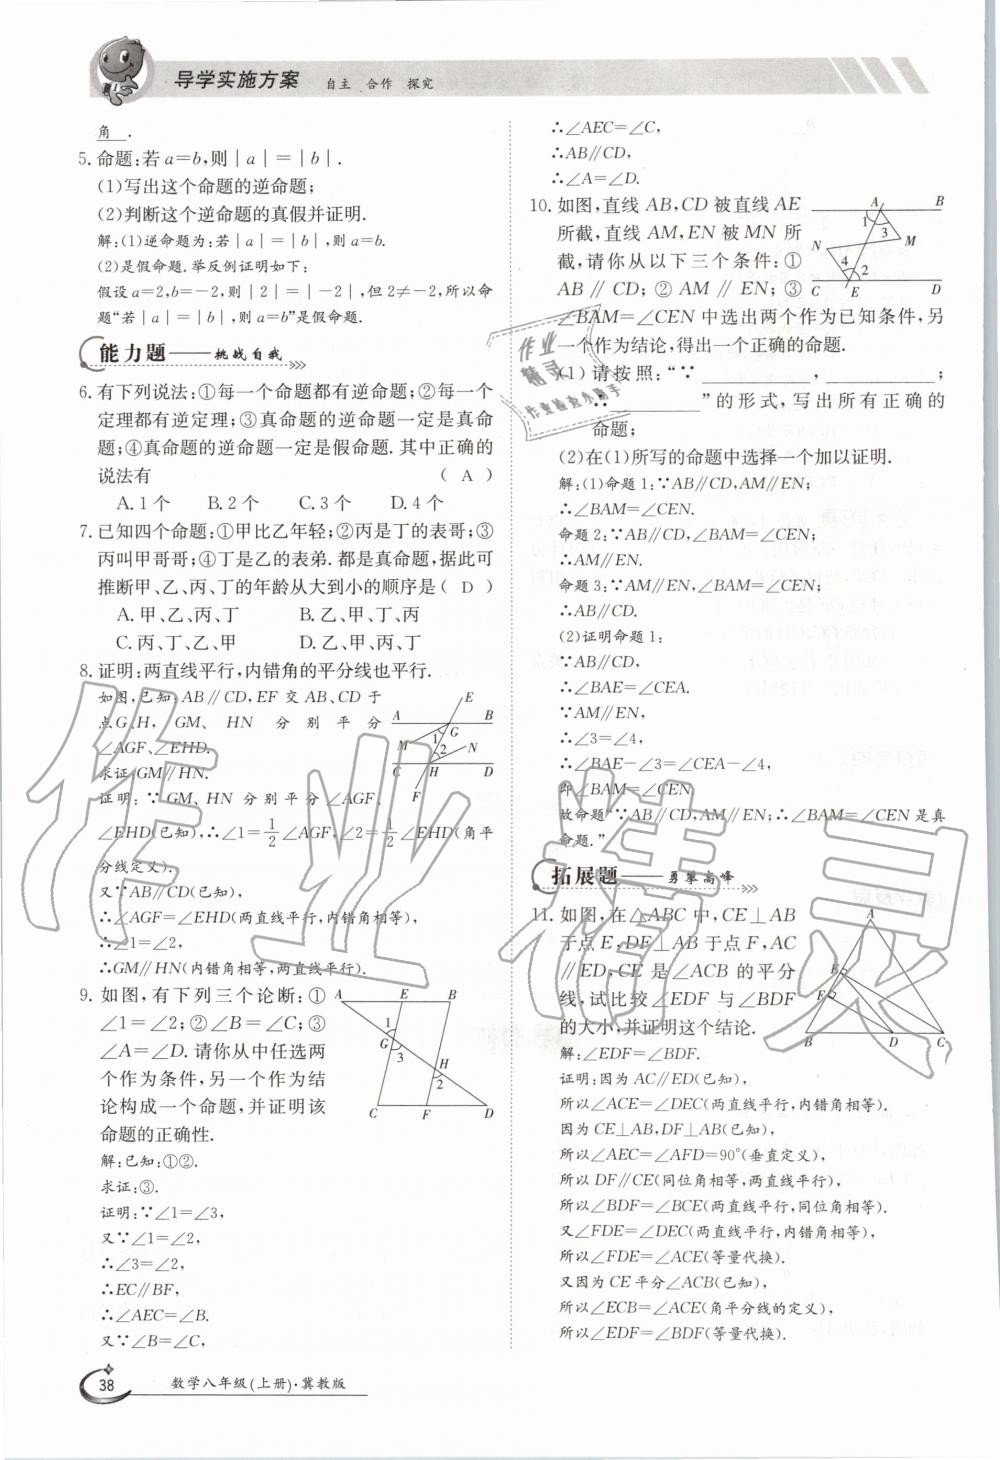 导学实施方案 自主 合作 探究
角.
5.命题:若a=b,则|a|=|b|.
(1)写出这个命题的逆命题;
(2)判断这个逆命题的真假并证明.
解:(1)逆命题为:若|a|=|b|,则a=b.
(2)是假命题.举反例证明如下:
假设a=2,b=-2,则|2|=|-2|,但2≠-2,所以命
题“若|a|=|b|,则a=b”是假命题.
能力题——挑战自我
6.有下列说法:①每一个命题都有逆命题;②每一个
定理都有逆定理;③真命题的逆命题一定是真命
题;④真命题的逆命题一定是假命题.其中正确的
说法有 ( A )
A.1个 B.2个 C.3个 D.4个
7.已知四个命题:①甲比乙年轻;②丙是丁的表哥;③
丙叫甲哥哥;④丁是乙的表弟.都是真命题,据此可
推断甲、乙、丙、丁的年龄从大到小的顺序是( D )
A.甲、乙、丙、丁 B.甲、乙、丁、丙
C.丙、丁、乙、甲 D.乙、甲、丙、丁
8.证明:两直线平行,内错角的平分线也平行.
如图,已知:AB∥CD,EF交AB、CD于
点G、H,GM、HN分别平分
∠AGF、∠EHD.
求证:GM∥HN.
A B C D E F G H M N 1 2
证明:∵GM、HN分别平分∠AGF、
∠EHD(已知),∴∠1=1/2∠AGF,∠2=1/2∠EHD(角平
分线定义).
又∵AB∥CD(已知),
∴∠AGF=∠EHD(两直线平行,内错角相等),
∴∠1=∠2,
∴GM∥HN(内错角相等,两直线平行).
9.如图,有下列三个论断:①
∠1=∠2;②∠B=∠C;③
∠A=∠D.请你从中任选两
个作为条件,另一个作为结
论构成一个命题,并证明该
命题的正确性.
A E B G H C F D 1 3 2
解:已知:①②.
求证:③.
证明:∵∠1=∠3,
又∵∠1=∠2,
∴∠3=∠2,
∴EC∥BF,
∴∠AEC=∠B.
又∵∠B=∠C,
∴∠AEC=∠C,
∴AB∥CD,
∴∠A=∠D.
10.如图,直线AB,CD被直线AE
所截,直线AM,EN被MN所
截,请你从以下三个条件:①
AB∥CD;②AM∥EN;③
∠BAM=∠CEN中选出两个作为已知条件,另
一个作为结论,得出一个正确的命题.
A B 1 3 M N 4 2 C E D
(1)请按照:“∵________,________;
∴________”的形式,写出所有正确的
命题;
(2)在(1)所写的命题中选择一个加以证明.
解:(1)命题1:∵AB∥CD,AM∥EN;
∴∠BAM=∠CEN.
命题2:∵AB∥CD,∠BAM=∠CEN;
∴AM∥EN.
命题3:∵AM∥EN,∠BAM=∠CEN;
∴AB∥CD.
(2)证明命题1:
∵AB∥CD,
∴∠BAE=∠CEA.
∵AM∥EN,
∴∠3=∠4,
∴∠BAE-∠3=∠CEA-∠4,
即∠BAM=∠CEN.
故命题“∵AB∥CD,AM∥EN;∴∠BAM=∠CEN是真
命题.”
拓展题——勇攀高峰
11.如图,在△ABC中,CE⊥AB
于点E,DF⊥AB于点F,AC
∥ED,CE是∠ACB的平分
线,试比较∠EDF与∠BDF
的大小,并证明这个结论.
A E F B D C
解:∠EDF=∠BDF.
证明:因为AC∥ED(已知),
所以∠ACE=∠DEC(两直线平行,内错角相等).
因为CE⊥AB,DF⊥AB(已知),
所以∠AEC=∠AFD=90°(垂直定义),
所以DF∥CE(同位角相等,两直线平行),
所以∠BDF=∠BCE(两直线平行,同位角相等).
又∠FDE=∠DEC(两直线平行,内错角相等),
所以∠FDE=∠ACE(等量代换).
又因为CE平分∠ACB(已知),
所以∠ECB=∠ACE(角平分线的定义),
所以∠EDF=∠BDF(等量代换).
38 数学八年级(上册)·冀教版
作业精灵
作业
精灵
作业检查小助手